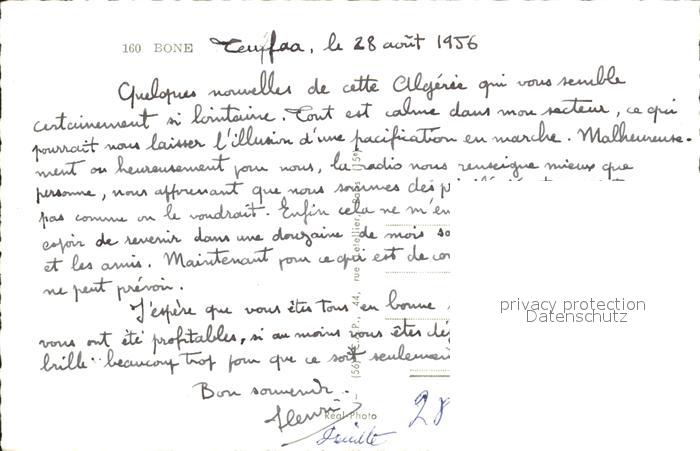 160 BONE
Teuffaa, le 28 août 1956
Quelques nouvelles de cette Algérie qui vous semble
certainement si lointaine. Tout est calme dans mon secteur, ce qui
pourrait nous laisser l'illusion d'une pacification en marche. Malheureuse-
ment ou heureusement pour nous, la radio nous renseigne mieux que
personne, nous apprenant que nous sommes des
pas comme on le voudrait. Enfin cela ne m'en
espoir de revenir dans une douzaine de mois
et les amis. Maintenant pour ce qui est de
ne peut prévoir.
J'espère que vous êtes tous en bonne
vous ont été profitables, si au moins vous êtes
brille beaucoup trop pour que ce soit seulement
Bon souvenir.
Henri
Real-Photo
28
privacy protection
Datenschutz